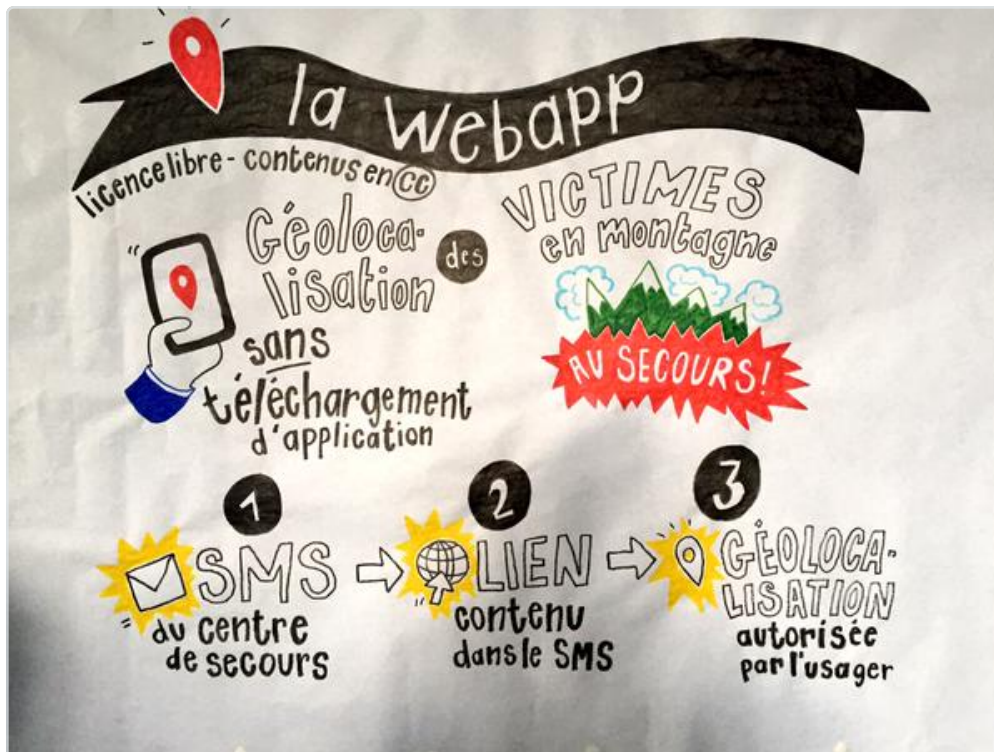 la webapp
licence libre - contenus en CC
Géoloca-
lisation
des
VICTIMES
en montagne
AU SECOURS!
sans
téléchargement
d'application
1
SMS
du centre
de secours
2
LIEN
contenu
dans le SMS
3
GÉOLOCA-
LISATION
autorisée
par l'usager